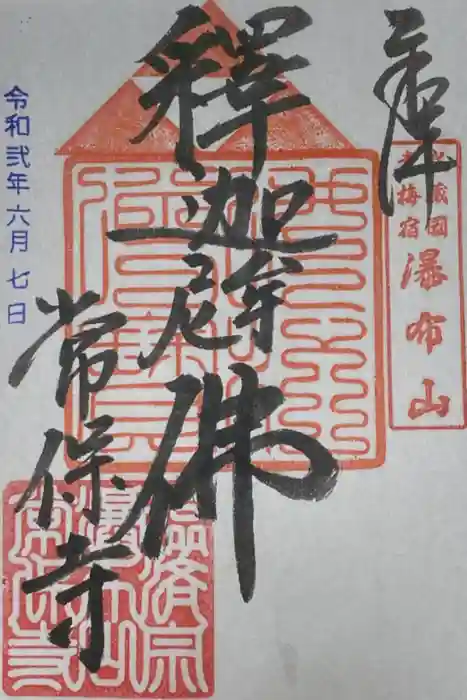 奉拝
武蔵国
青梅宿
瀑布山
釋迦牟尼佛
常保寺
令和弐年六月七日